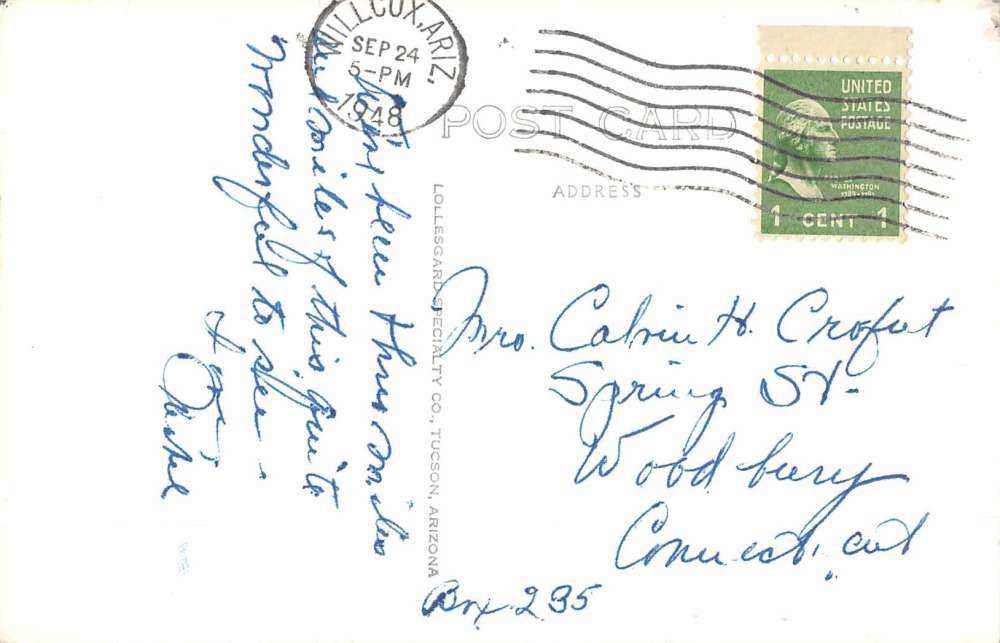 WILLCOX, ARIZ.
SEP 24
5-PM
1948
POST CARD
ADDRESS
UNITED
STATES
POSTAGE
WASHINGTON
1789-1797
1 CENT 1
LOLLESGARD SPECIALTY CO., TUCSON, ARIZONA
been thru miles
and miles of this, quite
wonderful to see.
Mrs. Calvin H. Crofut
Spring St.
Woodbury
Connecticut
Box 235